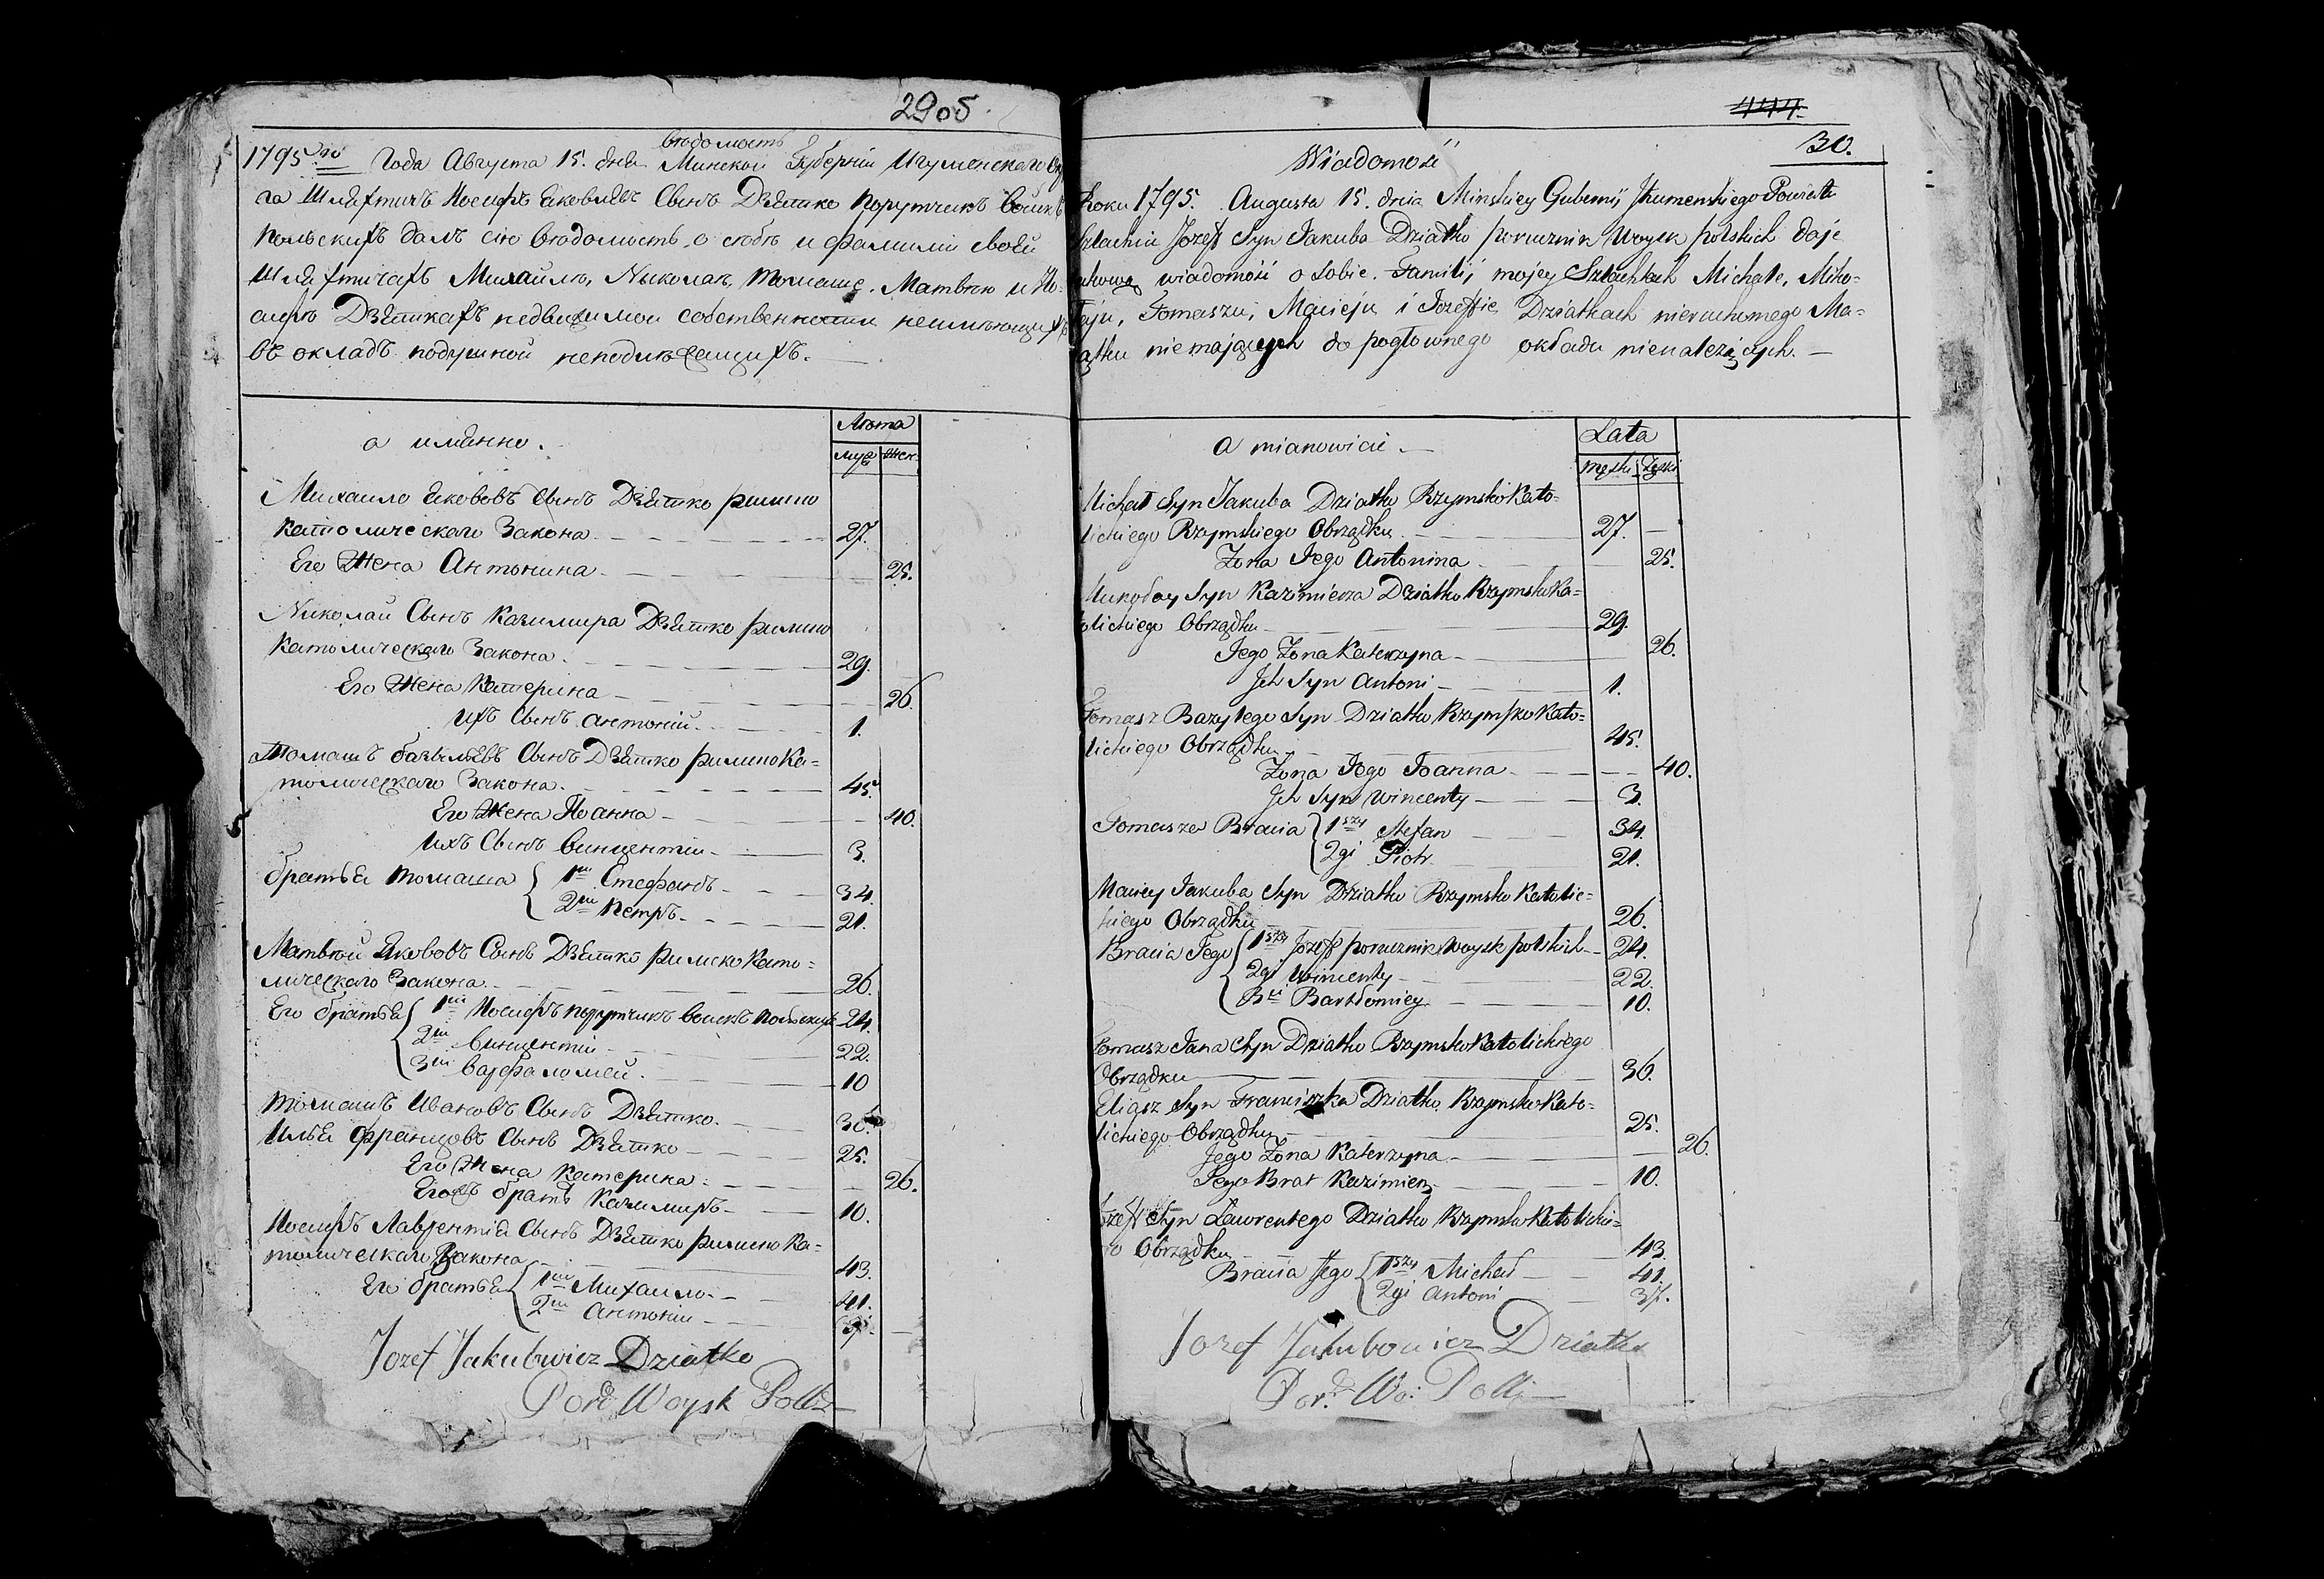 2905
вѣдомость
1795го Года Августа 15. дня Минской Губерніи Игуменскаго
га Шляхтичъ Иосифъ Яковлевъ Сынъ Дзятко Порутчикъ Войскъ
Польскихъ далъ сію вѣдомость о себѣ и фамиліи своей
Шляхтичахъ Михайлѣ, Николаѣ, Томашѣ, Матвѣю и Ио-
сифѣ Дзяткахъ недвижимои собственности неимѣющихъ
въ окладъ подушной неподлежащихъ.
а имянно.
Лѣта
муж жен.
Михаило Якововъ Сынъ Дзятко римско
католическаго Закона 27.
Его Жена Антонина 25.
Николаи Сынъ Казимира Дзятко римско
Католическаго Закона. 29.
Его Жена Катерина 26.
Ихъ Сынъ Антоній 1.
Томашъ базылевъ Сынъ Дзятко римско Ка=
толическаго Закона. 45.
Его Жена Иоанна 40.
Ихъ Сынъ Винцентіи 3.
братья Томаша { 1и Стефанъ 34.
2и Петръ 21.
Матвѣй Якововъ Сынъ Дзятко римско Като=
лическаго Закона 26.
Его братья { 1и Иосифъ порутчикъ воискъ польскихъ 24.
2и Винцентіи 22.
3и Варфаломей. 10
Томашъ Ивановъ Сынъ Дзятко. 36.
Илья Францовъ Сынъ Дзятко 25.
Его Жена Катерина 26.
Его братъ Казимиръ 10.
Иосифъ Лаврентія Сынъ Дзятко римско Ка=
толическаго Закона 43.
Его братья { 1и Михаило 41.
2и Антоніи 37.
Jozef Jakubowicz Dziatko
Por. Woysk Polls
444.
30.
Wiadomość
Roku 1795. Augusta 15. dnia Minskiey Gubernij Jhumenskiego Powiatu
Szlachcic Jozeff Syn Jakuba Dziatko porucznik Woysk polskich daje
takową wiadomość o Sobie. Familij mojey Szlachtach Michale, Miko-
łaju, Tomaszu, Macieju i Jozeffie Dziatkach nieruchomego Ma-
ątku niemających do pogłownego okładu nienależących.
a mianowicie
Lata
męski żeski
Michał Syn Jakuba Dziatko Rzymsko Kato-
lickiego Rzymskiego Obrządku 27.
Zona Jego Antonina 25.
Mikołay Syn Kazimierza Dziatko Rzymsko Ka=
tolickiego Obrządku 29.
Jego Zona Katerzyna 26.
Jch Syn Antoni 1.
Tomasz Bazylego Syn Dziatko Rzymsko Kato=
lickiego Obrządku 45.
Zona Jego Joanna 40.
Jch Syn Wincenty 3.
Tomasza Bracia { 1szy Stefan 34.
2gi Piotr 21.
Maciey Jakuba Syn Dziatko Rzymsko Katolic=
kiego Obrządku 26.
Bracia Jego { 1szy Jozeff porucznik Woysk polskich 24.
2gi Wincenty 22.
3ci Bartłomiey 10.
Tomasz Jana Syn Dziatko Rzymsko Katolickiego
Obrządku 36.
Eliasz Syn Franciszka Dziatko Rzymsko Kato=
lickiego Obrządku 25.
Jego Zona Katerzyna 26.
Jego Brat Kazimierz 10.
Jozeff Syn Laurentego Dziatko Rzymsko Katolickie=
go Obrządku 43.
Bracia Jego { 1szy Michał 41.
2gi Antoni 37.
Jozef Jakubowicz Dziatko
Por. Wo: Poll: